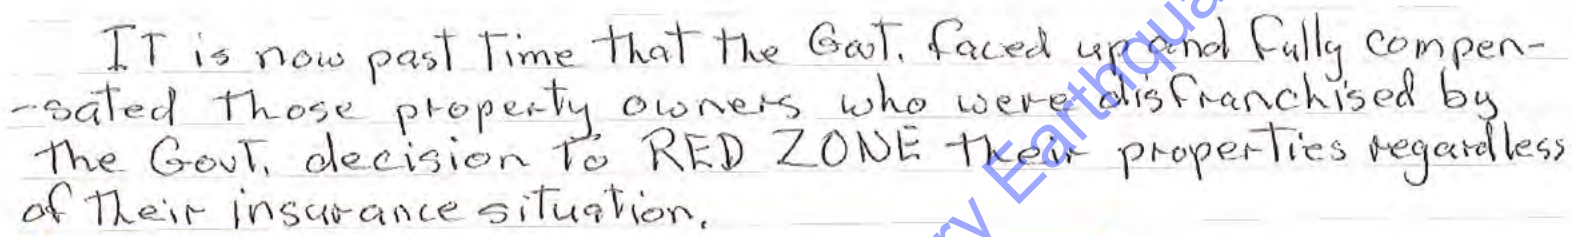 IT is now past Time that the Govt. faced up and fully compen-
-sated those property owners who were disfranchised by
the Govt. decision to RED ZONE their properties regardless
of their insurance situation.
ry Earthqua